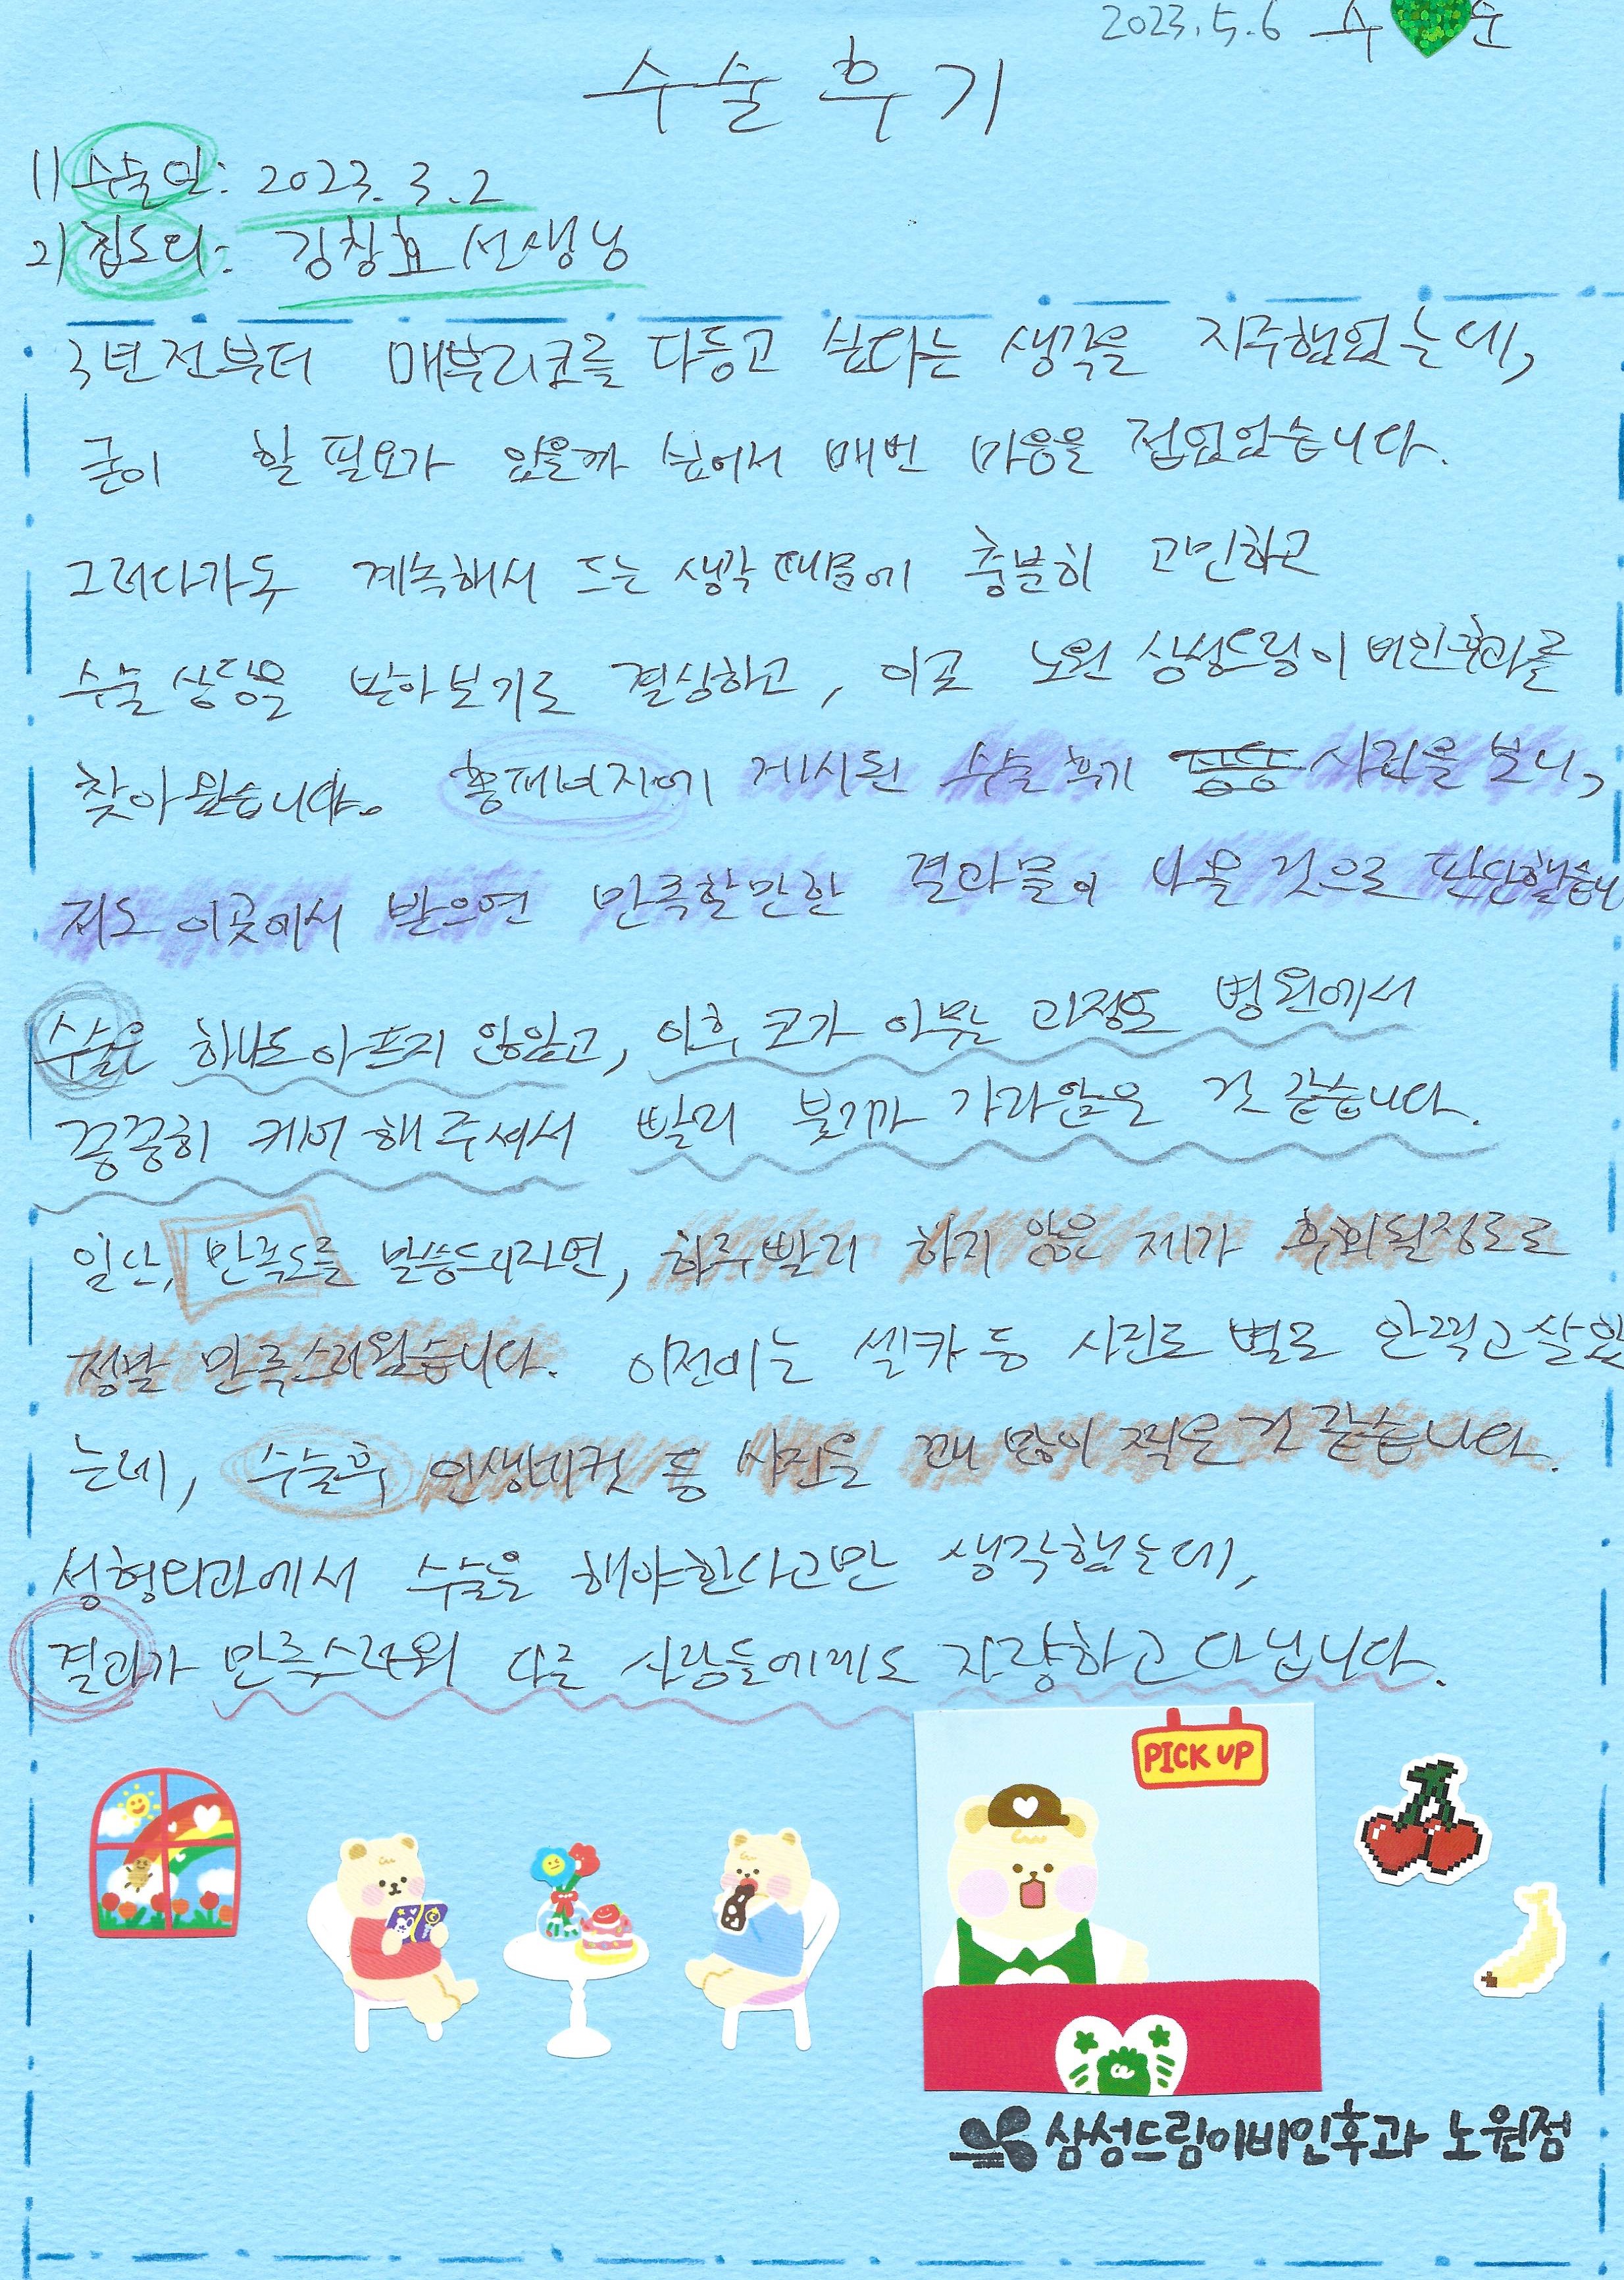 2023.5.6 수 순
수술 후 기
1) 수술일: 2023.3.2
2) 집도의: 김창효 선생님
3년 전부터 매부리코를 다듬고 싶다는 생각을 자주했었는데,
굳이 할 필요가 있을까 싶어서 매번 마음을 접었었습니다.
그러다가도 계속해서 드는 생각 때문에 충분히 고민하고
수술 상담을 받아보기로 결심하고, 이곳 노원 삼성드림이비인후과를
찾아왔습니다. 홈페이지에 게시된 수술 후기 사진을 보니,
저도 이곳에서 받으면 만족할만한 결과물이 나올 것으로 판단했습니
수술은 하나도 아프지 않았고, 이후 코가 아무는 과정도 병원에서
꼼꼼히 케어해주셔서 빨리 붓기가 가라앉은 것 같습니다.
일단, 만족도를 말씀드리자면, 하루빨리 하지 않은 제가 후회될정도로
정말 만족스러웠습니다. 이전에는 셀카 등 사진도 별로 안찍고 살았
는데, 수술후 인생네컷 등 사진을 꽤 많이 찍은 것 같습니다.
성형외과에서 수술을 해야한다고만 생각했는데,
결과가 만족스러워 다른 사람들에게도 자랑하고 다닙니다.
PICK UP
삼성드림이비인후과 노원점